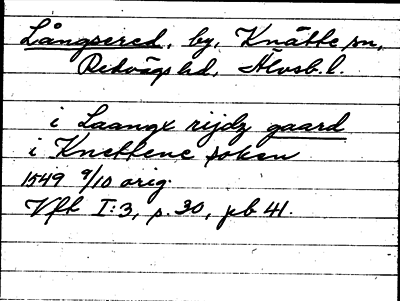 Långsered, by, Knätte sn,
Redvägs hd, Älvsb. l.
i Laangx rijdz gaard
i Knettene soken
1549 9/10 orig.
Vfk I:3, s. 30, pb 41.